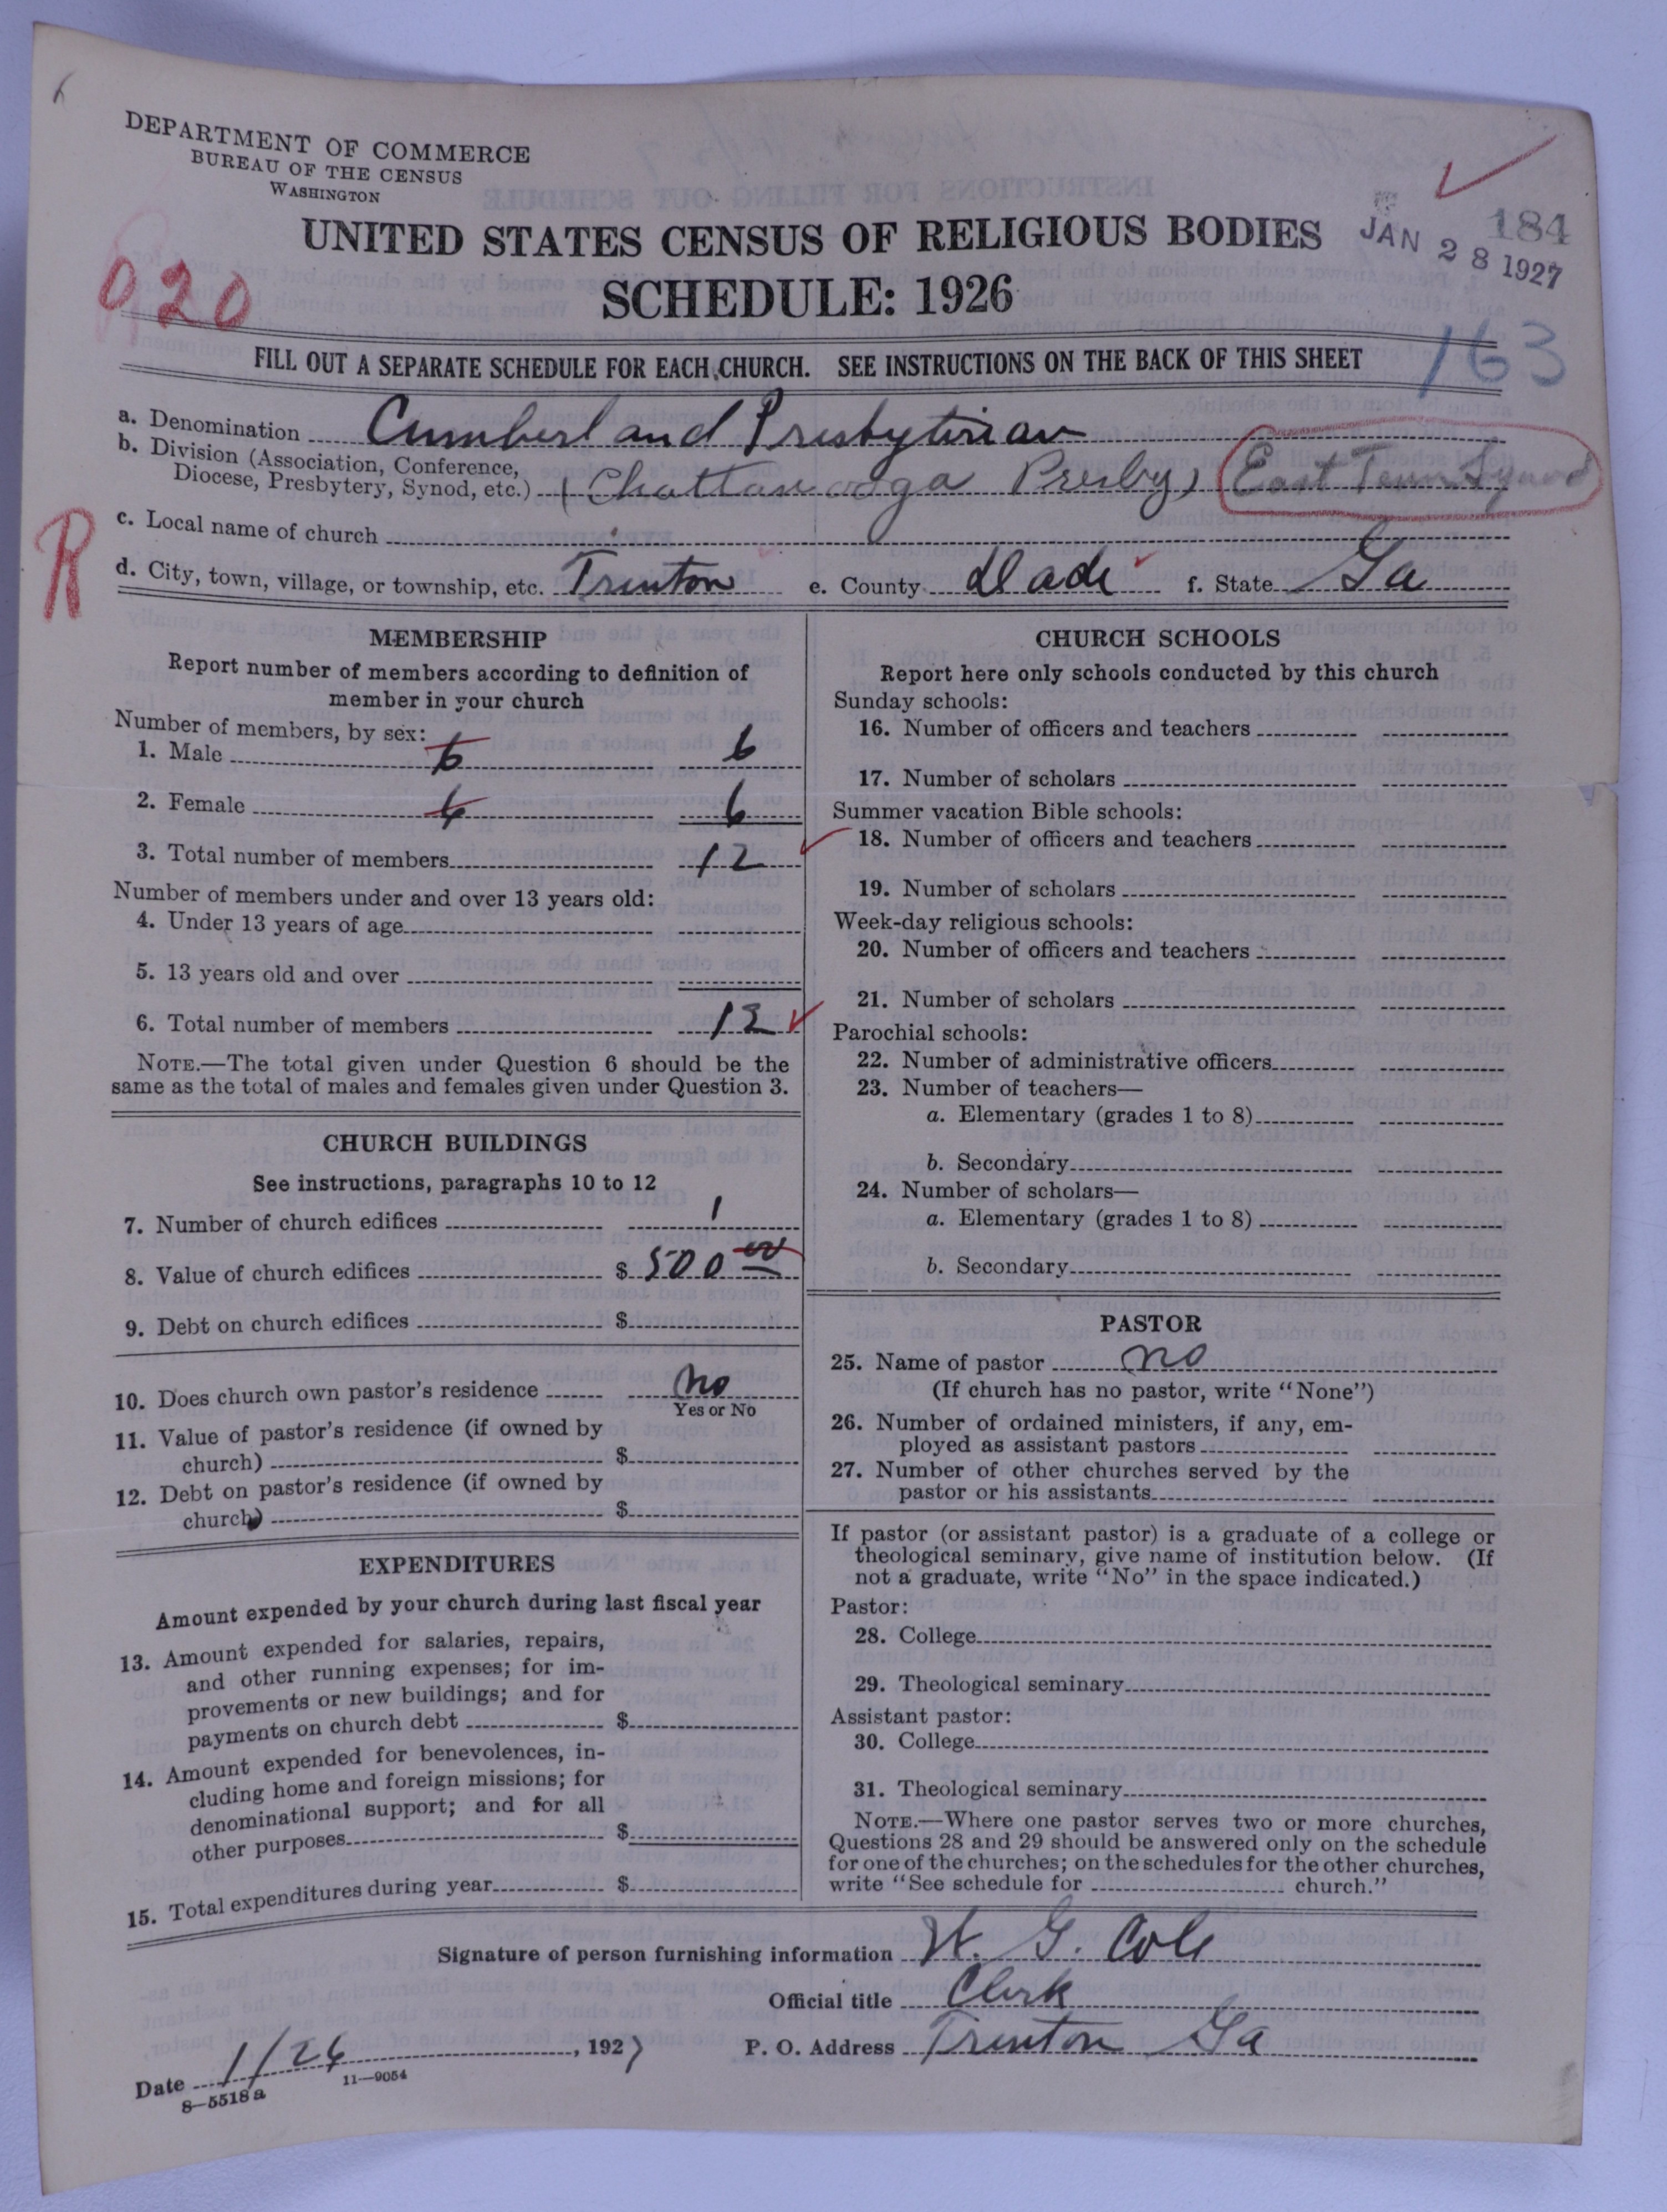 DEPARTMENT OF COMMERCE
BUREAU OF THE CENSUS
WASHINGTON
UNITED STATES CENSUS OF RELIGIOUS BODIES
SCHEDULE: 1926
184
JAN 28 1927
020
163
FILL OUT A SEPARATE SCHEDULE FOR EACH CHURCH. SEE INSTRUCTIONS ON THE BACK OF THIS SHEET
a. Denomination Cumberland Presbyterian
b. Division (Association, Conference,
Diocese, Presbytery, Synod, etc.) (Chattanooga Presby) East Tenn. Synod
R
c. Local name of church
d. City, town, village, or township, etc. Trenton e. County Dade f. State Ga
MEMBERSHIP
Report number of members according to definition of
member in your church
Number of members, by sex:
1. Male 6 6
2. Female 6 6
3. Total number of members 12
Number of members under and over 13 years old:
4. Under 13 years of age
5. 13 years old and over
6. Total number of members 12
NOTE.—The total given under Question 6 should be the
same as the total of males and females given under Question 3.
CHURCH BUILDINGS
See instructions, paragraphs 10 to 12
7. Number of church edifices 1
8. Value of church edifices $ 500 00
9. Debt on church edifices $
10. Does church own pastor's residence no
Yes or No
11. Value of pastor's residence (if owned by
church) $
12. Debt on pastor's residence (if owned by
church) $
EXPENDITURES
Amount expended by your church during last fiscal year
13. Amount expended for salaries, repairs,
and other running expenses; for im-
provements or new buildings; and for
payments on church debt $
14. Amount expended for benevolences, in-
cluding home and foreign missions; for
denominational support; and for all
other purposes $
15. Total expenditures during year $
CHURCH SCHOOLS
Report here only schools conducted by this church
Sunday schools:
16. Number of officers and teachers
17. Number of scholars
Summer vacation Bible schools:
18. Number of officers and teachers
19. Number of scholars
Week-day religious schools:
20. Number of officers and teachers
21. Number of scholars
Parochial schools:
22. Number of administrative officers
23. Number of teachers—
a. Elementary (grades 1 to 8)
b. Secondary
24. Number of scholars—
a. Elementary (grades 1 to 8)
b. Secondary
PASTOR
25. Name of pastor no
(If church has no pastor, write "None")
26. Number of ordained ministers, if any, em-
ployed as assistant pastors
27. Number of other churches served by the
pastor or his assistants
If pastor (or assistant pastor) is a graduate of a college or
theological seminary, give name of institution below. (If
not a graduate, write "No" in the space indicated.)
Pastor:
28. College
29. Theological seminary
Assistant pastor:
30. College
31. Theological seminary
NOTE.—Where one pastor serves two or more churches,
Questions 28 and 29 should be answered only on the schedule
for one of the churches; on the schedules for the other churches,
write "See schedule for church."
Signature of person furnishing information W. G. Cole
Official title Clerk
Date 1/26, 1927 P. O. Address Trenton Ga
8—5518 a 11—9054